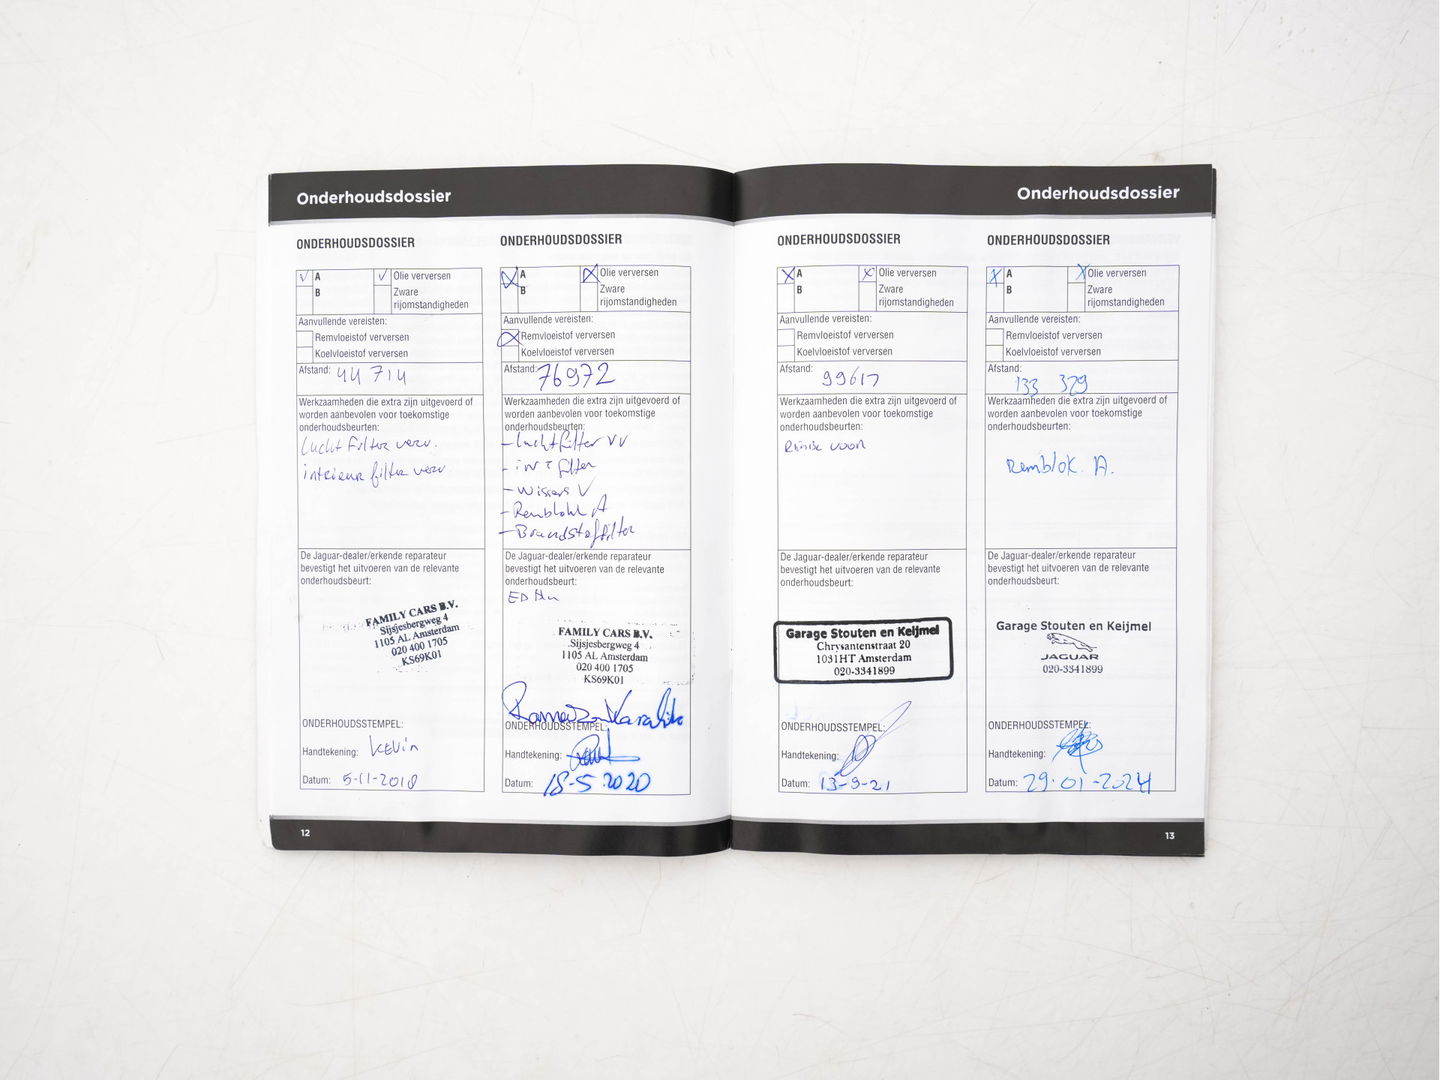 Onderhoudsdossier
ONDERHOUDSDOSSIER
A
Olie verversen
B
Zware
rijomstandigheden
Aanvullende vereisten:
Remvloeistof verversen
Koelvloeistof verversen
Afstand: 44 714
Werkzaamheden die extra zijn uitgevoerd of
worden aanbevolen voor toekomstige
onderhoudsbeurten:
Lucht filter verv.
interieur filter verv.
De Jaguar-dealer/erkende reparateur
bevestigt het uitvoeren van de relevante
onderhoudsbeurt:
FAMILY CARS B.V.
Sijsjesbergweg 4
1105 AL Amsterdam
020 400 1705
KS69K01
ONDERHOUDSSTEMPEL:
Handtekening: Kevin
Datum: 5-11-2018
12
ONDERHOUDSDOSSIER
A
Olie verversen
B
Zware
rijomstandigheden
Aanvullende vereisten:
Remvloeistof verversen
Koelvloeistof verversen
Afstand: 76972
Werkzaamheden die extra zijn uitgevoerd of
worden aanbevolen voor toekomstige
onderhoudsbeurten:
- Luchtfilter VV
- int filter
- Wissers V
- Remblokk A
- Brandstoffilter
De Jaguar-dealer/erkende reparateur
bevestigt het uitvoeren van de relevante
onderhoudsbeurt:
FAMILY CARS B.V.
Sijsjesbergweg 4
1105 AL Amsterdam
020 400 1705
KS69K01
ONDERHOUDSSTEMPEL:
Handtekening:
Datum: 18-5-2020
Onderhoudsdossier
ONDERHOUDSDOSSIER
A
Olie verversen
B
Zware
rijomstandigheden
Aanvullende vereisten:
Remvloeistof verversen
Koelvloeistof verversen
Afstand: 99617
Werkzaamheden die extra zijn uitgevoerd of
worden aanbevolen voor toekomstige
onderhoudsbeurten:
voor
De Jaguar-dealer/erkende reparateur
bevestigt het uitvoeren van de relevante
onderhoudsbeurt:
Garage Stouten en Keijmel
Chrysantenstraat 20
1031HT Amsterdam
020-3341899
ONDERHOUDSSTEMPEL:
Handtekening:
Datum: 13-9-21
ONDERHOUDSDOSSIER
A
Olie verversen
B
Zware
rijomstandigheden
Aanvullende vereisten:
Remvloeistof verversen
Koelvloeistof verversen
Afstand: 133 329
Werkzaamheden die extra zijn uitgevoerd of
worden aanbevolen voor toekomstige
onderhoudsbeurten:
Remblok. A.
De Jaguar-dealer/erkende reparateur
bevestigt het uitvoeren van de relevante
onderhoudsbeurt:
Garage Stouten en Keijmel
JAGUAR
020-3341899
ONDERHOUDSSTEMPEL:
Handtekening:
Datum: 29-01-2024
13